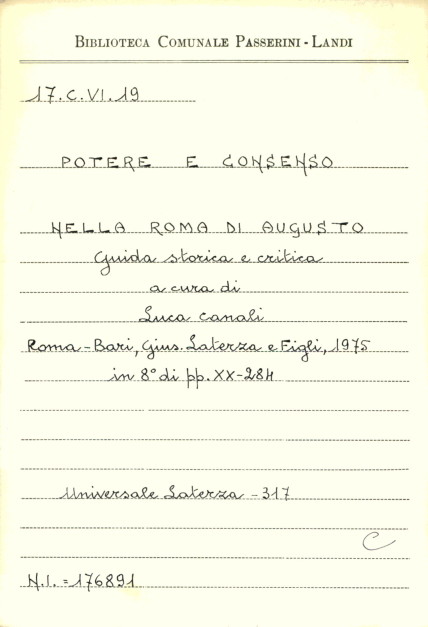 BIBLIOTECA COMUNALE PASSERINI-LANDI
17.C.VI.19
POTERE E CONSENSO
NELLA ROMA DI AUGUSTO
Guida storica e critica
a cura di
Luca Canali
Roma-Bari, Gius. Laterza e Figli, 1975
in 8° di pp. XX-284
Universale Laterza - 317
C
N.I. = 176891